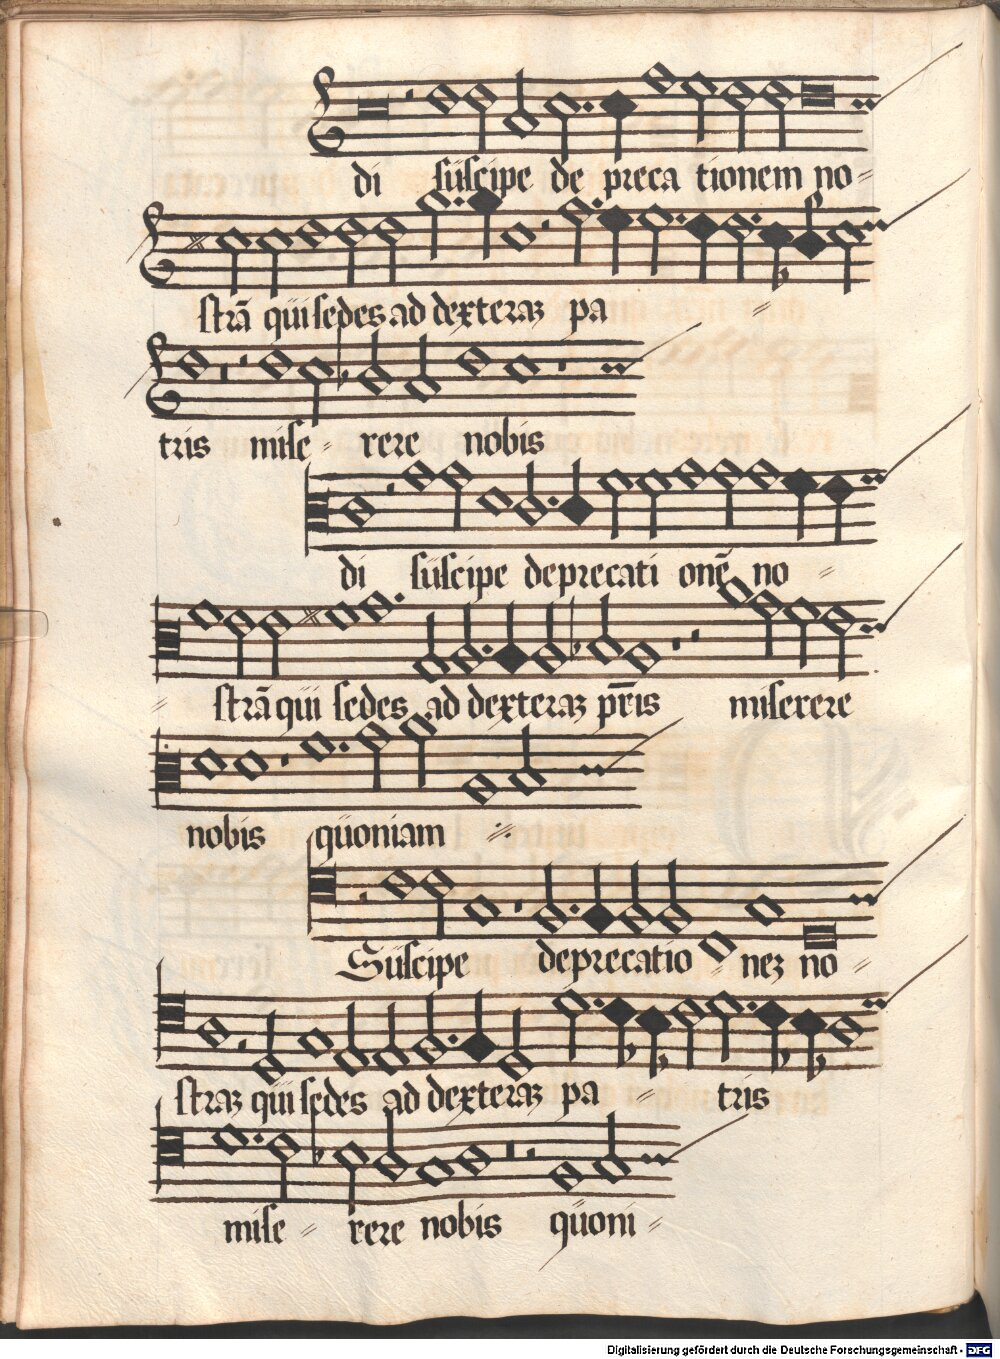 di suscipe de preca tionem no-
strā qui sedes ad dexteraz pa =
tris mise - rere nobis
di suscipe deprecati onē no =
= strā qui sedes ad dexteraz pr̄is miserere
nobis quoniam
Suscipe deprecatio nez no =
straz qui sedes ad dexteraz pa = tris
mise = rere nobis quoni =
Digitalisierung gefördert durch die Deutsche Forschungsgemeinschaft - DFG